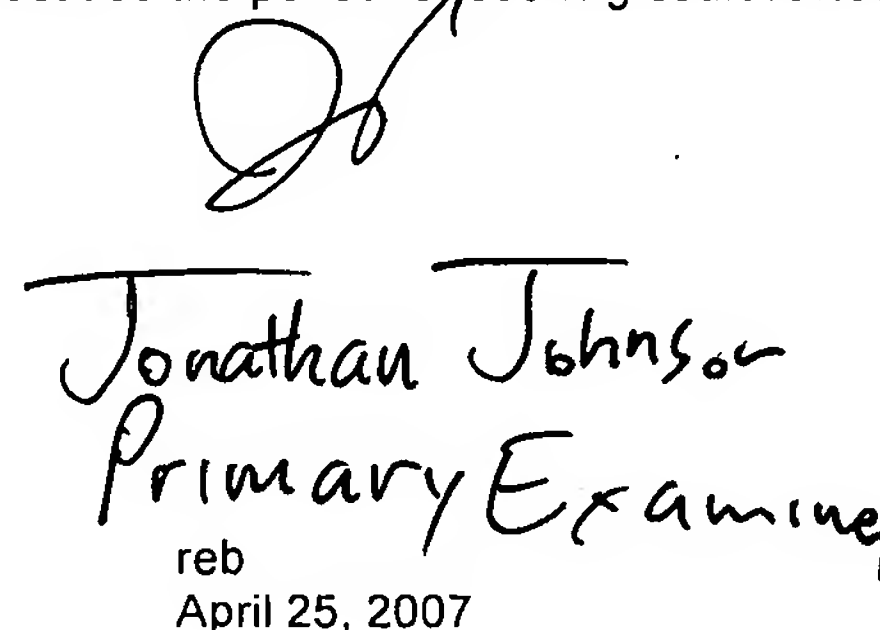 Jonathan Johnson
Primary Examine
reb
April 25, 2007